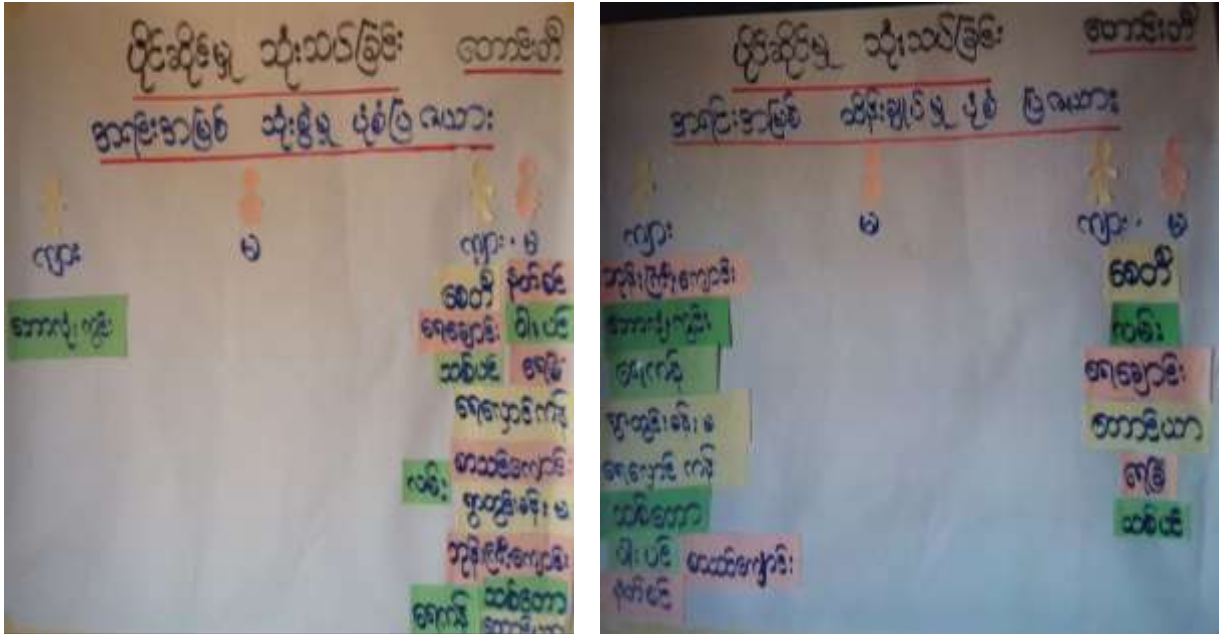 ပိုင်ဆိုင်မှု သုံးသပ်ခြင်း တောင်းတီ
အရင်းအမြစ် သုံးစွဲမှု ပုံစံပြ ဇယား
ကျား
မ
ကျား ၊ မ
ဘောလုံးကွင်း
စေတီ နတ်စင်
ရေချောင်း ဝါးပင်
သစ်ပင်
ရေလှောင်ကန်
လမ်း စာသင်ကျောင်း
ရွာတွင်းခန်းမ
ဘုန်းကြီးကျောင်း
ရေကန် သစ်တော
တောင်ယာ
ပိုင်ဆိုင်မှု သုံးသပ်ခြင်း တောင်းတီ
အရင်းအမြစ် ထိန်းချုပ်မှု ပုံစံ ပြ ဇယား
ကျား
မ
ကျား ၊ မ
ဘုန်းကြီးကျောင်း
ဘောလုံးကွင်း
ရေကန်
ရွာတွင်းခန်းမ
ရေလှောင်ကန်
သစ်တော
ဝါးပင် စာသင်ကျောင်း
နတ်စင်
စေတီ
လမ်း
ရေချောင်း
တောင်ယာ
သစ်ပင်